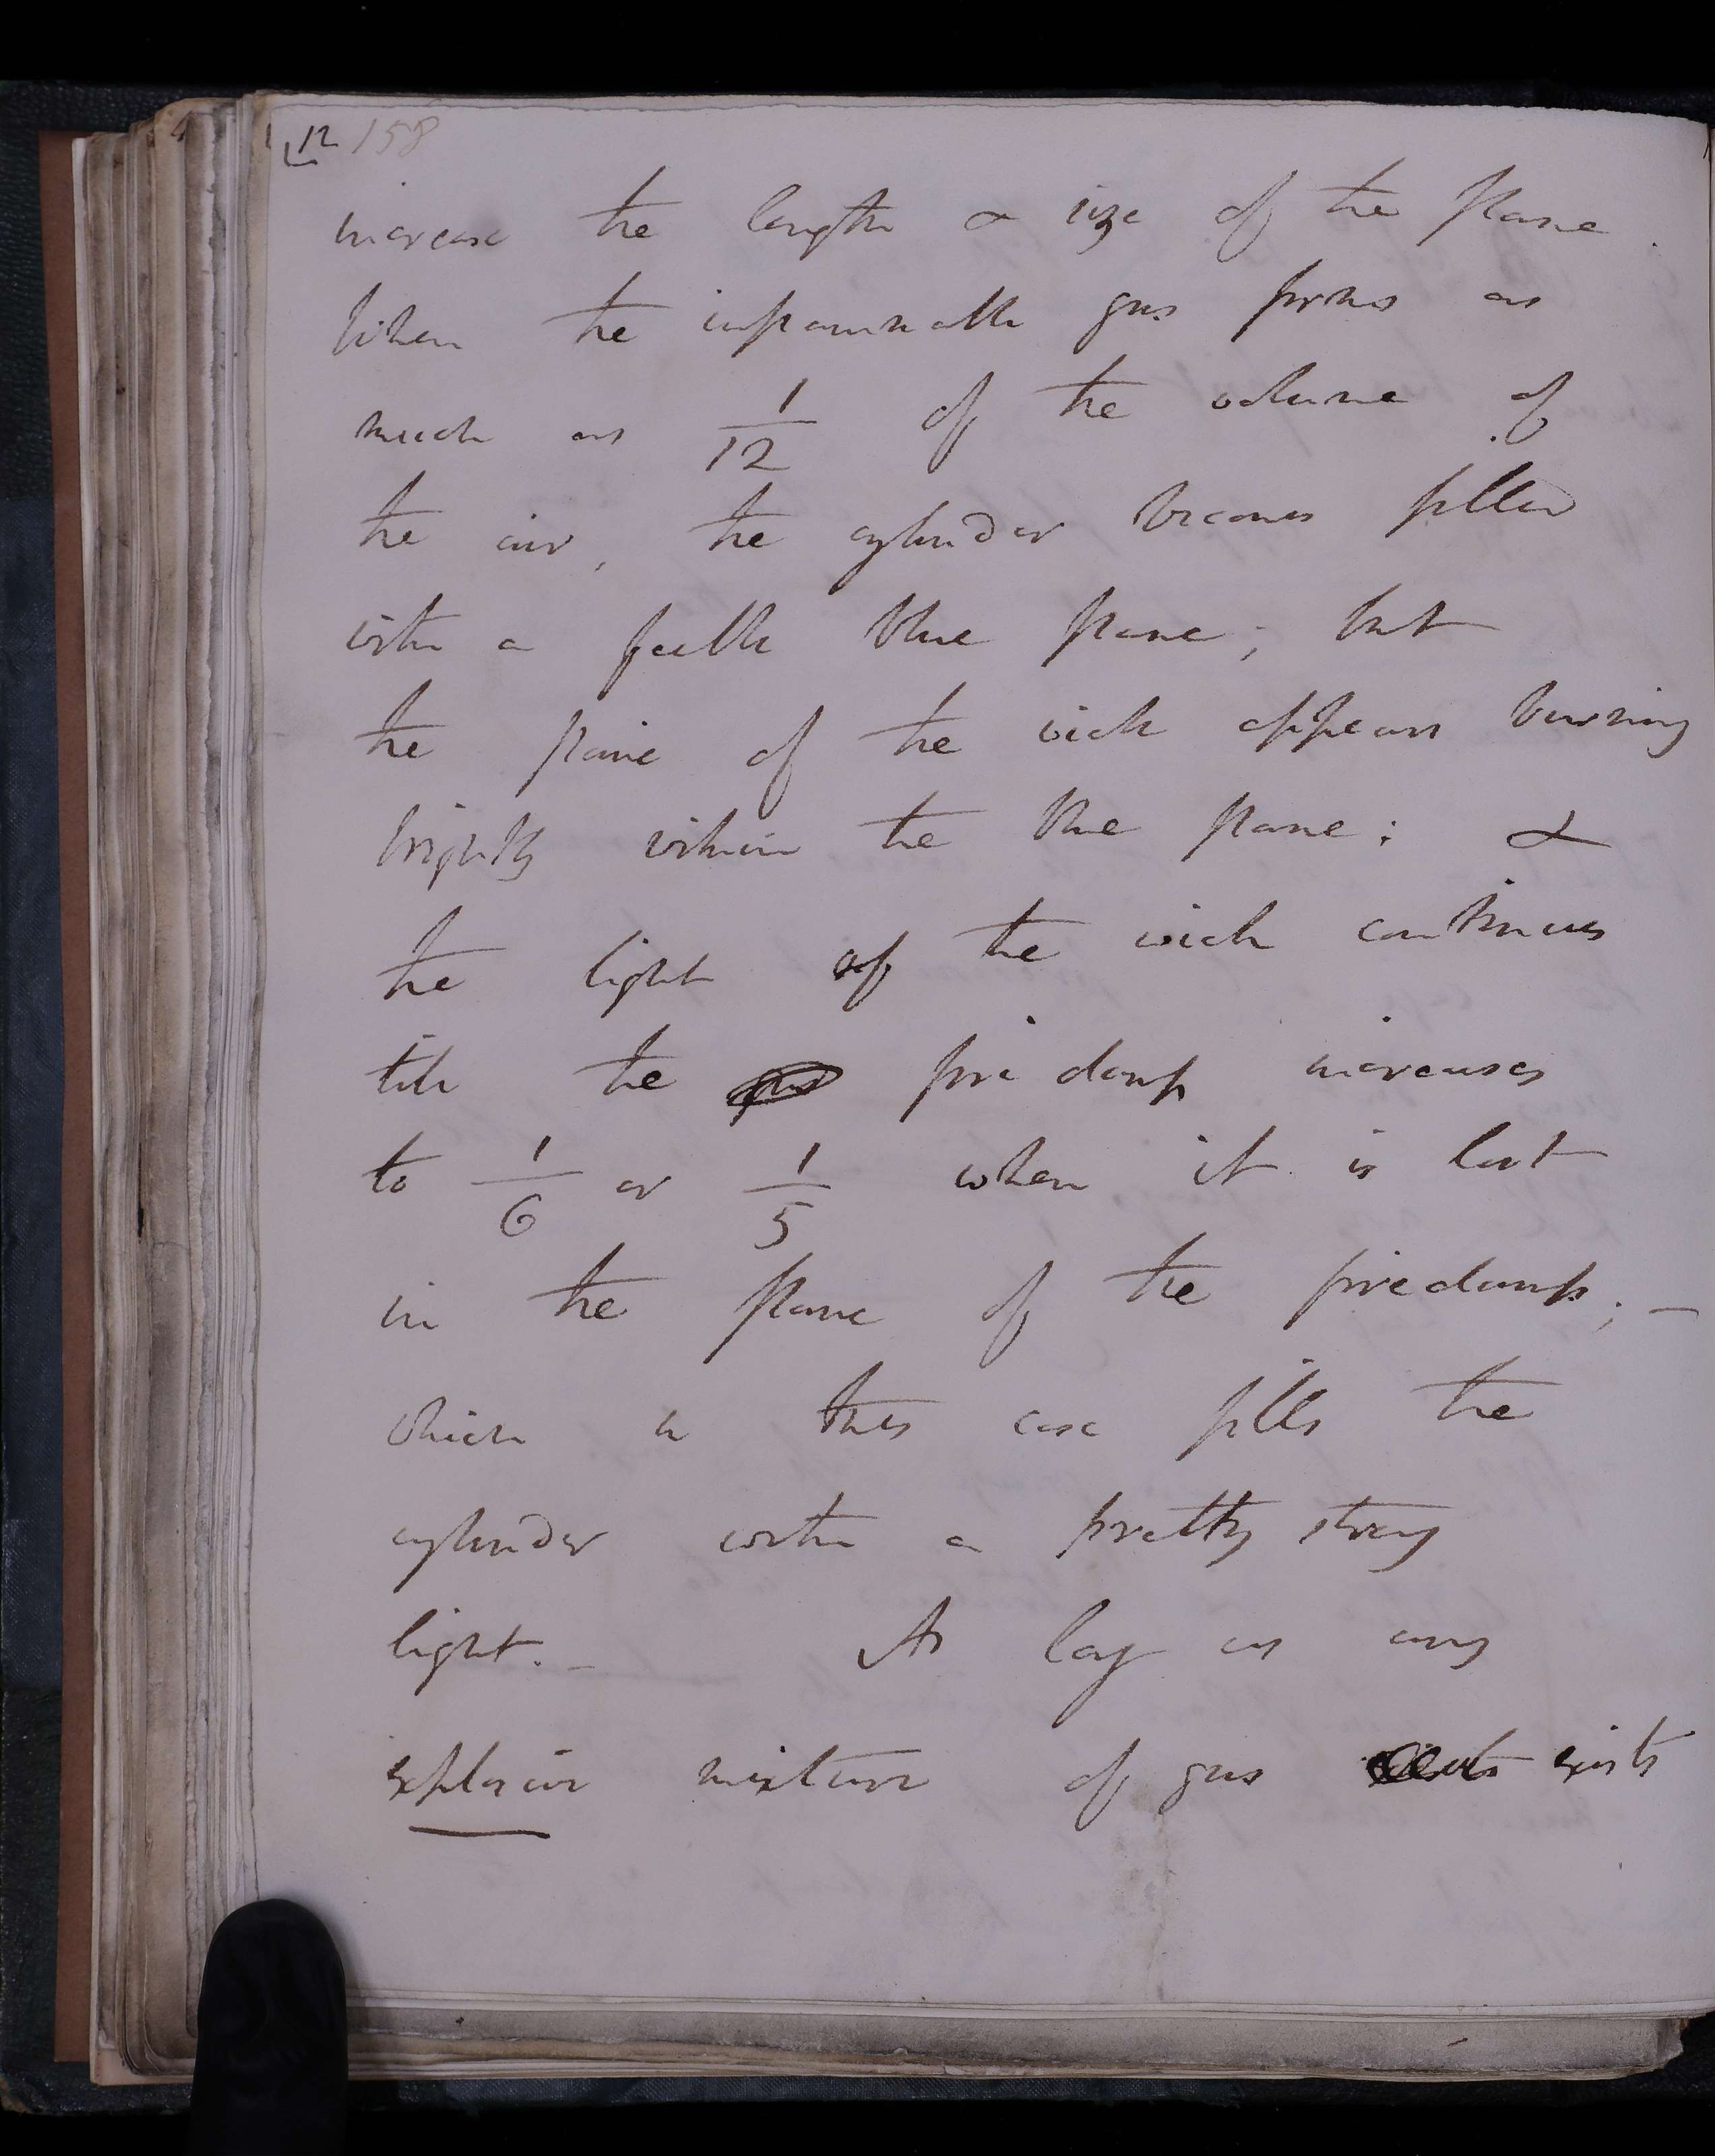 12 158
increase the length & size of the flame.
When the inflammable gas forms as
much as 1/12 of the volume of
the air, the cylinder becomes filled
with a feeble blue flame; but
the flame of the wick appears burning
brightly within the blue flame: &
the light of the wick continues
till the gas fire damp increases
to 1/6 or 1/5 when it is lost
in the flame of the fire damp; –
which in this case fills the
cylinder with a pretty strong
light. – As long as any
explosive mixture of gas exists